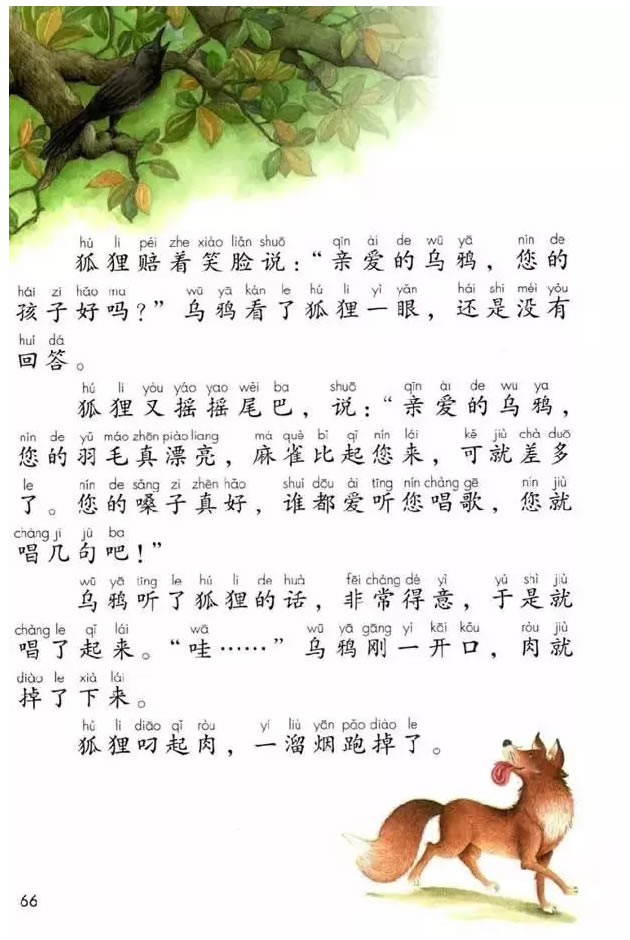 hú li péi zhe xiào liǎn shuō qīn ài de wū yā nín de
狐狸赔着笑脸说：“亲爱的乌鸦，您的
hái zi hǎo ma wū yā kàn le hú li yì yǎn hái shi méi yǒu
孩子好吗？”乌鸦看了狐狸一眼，还是没有
huí dá
回答。
hú li yòu yáo yao wěi ba shuō qīn ài de wū yā
狐狸又摇摇尾巴，说：“亲爱的乌鸦，
nín de yǔ máo zhēn piào liang má què bǐ qǐ nín lái kě jiù chà duō
您的羽毛真漂亮，麻雀比起您来，可就差多
le nín de sǎng zi zhēn hǎo shuí dōu ài tīng nín chàng gē nín jiù
了。您的嗓子真好，谁都爱听您唱歌，您就
chàng jǐ jù ba
唱几句吧！”
wū yā tīng le hú li de huà fēi cháng dé yì yú shì jiù
乌鸦听了狐狸的话，非常得意，于是就
chàng le qǐ lái wā wū yā gāng yì kāi kǒu ròu jiù
唱了起来。“哇……”乌鸦刚一开口，肉就
diào le xià lái
掉了下来。
hú li diāo qǐ ròu yí liù yān pǎo diào le
狐狸叼起肉，一溜烟跑掉了。
66